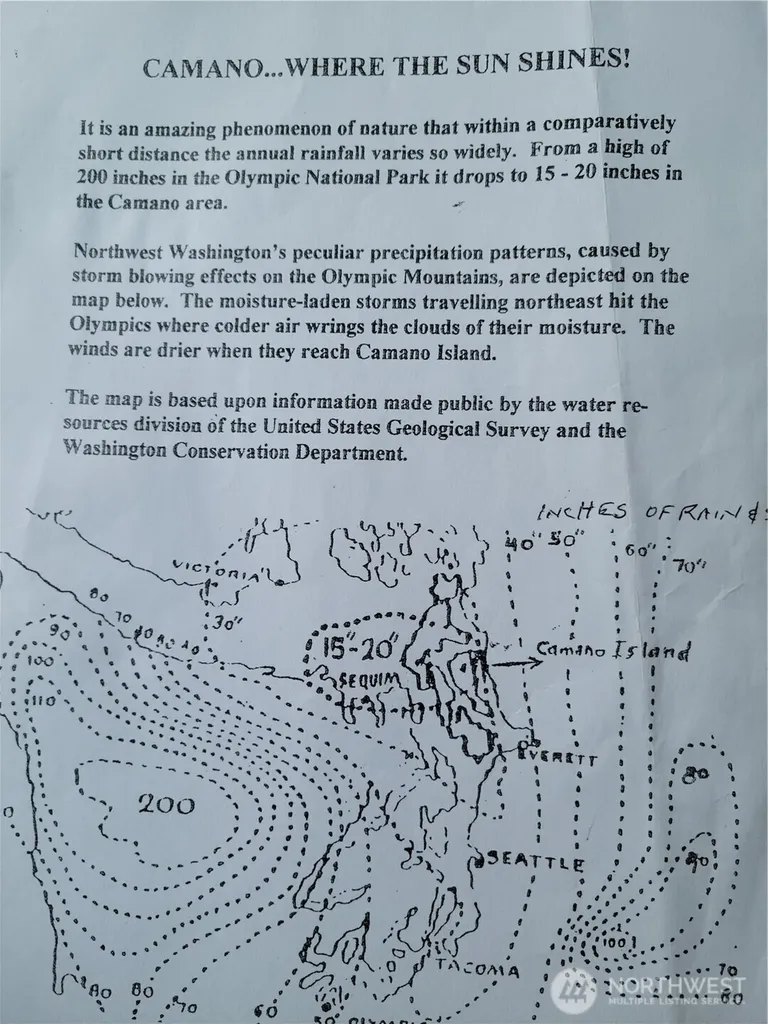 CAMANO...WHERE THE SUN SHINES!
It is an amazing phenomenon of nature that within a comparatively
short distance the annual rainfall varies so widely. From a high of
200 inches in the Olympic National Park it drops to 15 - 20 inches in
the Camano area.
Northwest Washington's peculiar precipitation patterns, caused by
storm blowing effects on the Olympic Mountains, are depicted on the
map below. The moisture-laden storms travelling northeast hit the
Olympics where colder air wrings the clouds of their moisture. The
winds are drier when they reach Camano Island.
The map is based upon information made public by the water re-
sources division of the United States Geological Survey and the
Washington Conservation Department.
INCHES OF RAIN &
40" 50" 60" 70"
VICTORIA
30"
80
70
90
100
110
15"-20"
SEQUIM
Camano Island
EVERETT
80
200
SEATTLE
90
100
TACOMA
70
80
80
80
70
60
50
NORTHWEST
MULTIPLE LISTING SERVICE